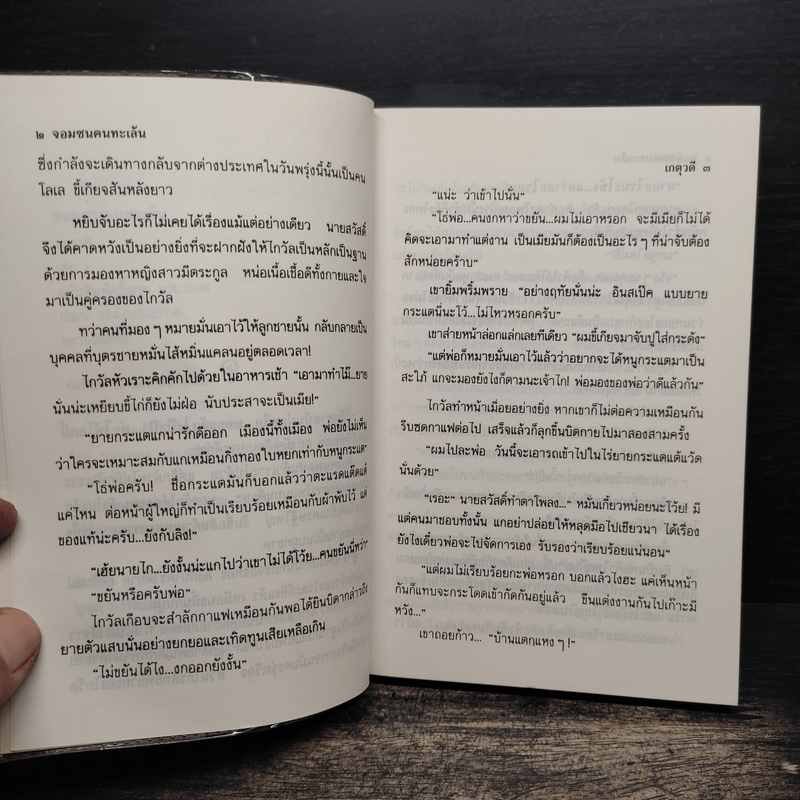 ๒ จอมซนคนทะเล้น
ซึ่งกำลังจะเดินทางกลับจากต่างประเทศในวันพรุ่งนี้นั้นเป็นคน
โลเล ขี้เกียจสันหลังยาว
หยิบจับอะไรก็ไม่เคยได้เรื่องแม้แต่อย่างเดียว นายสวัสดิ์
จึงได้คาดหวังเป็นอย่างยิ่งที่จะฝากฝังให้ไกวัลเป็นหลักเป็นฐาน
ด้วยการมองหาหญิงสาวมีตระกูล หน่อเนื้อเชื้อดีทั้งกายและใจ
มาเป็นคู่ครองของไกวัล
ทว่าคนที่มอง ๆ หมายมั่นเอาไว้ให้ลูกชายนั้น กลับกลายเป็น
บุคคลที่บุตรชายหมั่นไส้หมิ่นแคลนอยู่ตลอดเวลา!
ไกวัลหัวเราะคิกคักไปด้วยในอาหารเช้า “เอามาทำไม๊...ยาย
นั่นน่ะเหยียบขี้ไก่ก็ยังไม่ฝ่อ นับประสาจะเป็นเมีย!”
“ยายกระแตแกน่ารักดีออก เมืองนี้ทั้งเมือง พ่อยังไม่เห็น
ว่าใครจะเหมาะสมกับแกเหมือนกิ่งทองใบหยกเท่ากับหนูกระแต”
“โธ่พ่อครับ! ชื่อกระแตมันก็บอกแล้วว่าตะแรดแต๊ดแต๋
แค่ไหน ต่อหน้าผู้ใหญ่ก็ทำเป็นเรียบร้อยเหมือนกับผ้าพับไว้ แต่
ของแท้น่ะครับ...ยังกับลิง!”
“เฮ้ยนายไก...ยังงั้นน่ะแกไปว่าเขาไม่ได้โว้ย...คนขยันนี่หว่า”
“ขยันหรือครับพ่อ”
ไกวัลเกือบจะสำลักกาแฟเหมือนกันพอได้ยินบิดากล่าวถึง
ยายตัวแสบนั่นอย่างยกยอและเทิดทูนเสียเหลือเกิน
“ไม่ขยันได้ไง...งกออกยังงั้น”
เกตุวดี ๓
“แน่ะ ว่าเข้าไปนั่น”
“โธ่พ่อ...คนงกหาว่าขยัน...ผมไม่เอาหรอก จะมีเมียก็ไม่ได้
คิดจะเอามาทำแต่งาน เป็นเมียมันก็ต้องเป็นอะไร ๆ ที่น่าจับต้อง
สักหน่อยคร้าบ”
เขายิ้มพริ้มพราย “อย่างฤทัยนั่นน่ะ อินสเป๊ค แบบยาย
กระแตนี่นะโว้...ไม่ไหวหรอกครับ”
เขาส่ายหน้าล่อกแล่กเลยทีเดียว “ผมขี้เกียจมาจับปูใส่กระด้ง”
“แต่พ่อก็หมายมั่นเอาไว้แล้วว่าอยากจะได้หนูกระแตมาเป็น
สะใภ้ แกจะมองยังไงก็ตามนะเจ้าไก! พ่อมองของพ่อว่าดีแล้วกัน”
ไกวัลทำหน้าเมื่อยอย่างยิ่ง หากเขาก็ไม่ต่อความเหมือนกัน
รีบซดกาแฟต่อไป เสร็จแล้วก็ลุกขึ้นบิดกายไปมาสองสามครั้ง
“ผมไปละพ่อ วันนี้จะเอารถเข้าไปในไร่ยายกระแตแต้แว้ด
นั่นด้วย”
“เรอะ” นายสวัสดิ์ทำตาโพลง...” หมั่นเกี้ยวหน่อยนะโว้ย! มี
แต่คนมาชอบทั้งนั้น แกอย่าปล่อยให้หลุดมือไปเชียวนา ได้เรื่อง
ยังไงเดี๋ยวพ่อจะไปจัดการเอง รับรองว่าเรียบร้อยแน่นอน”
“แต่ผมไม่เรียบร้อยกะพ่อหรอก บอกแล้วไงฮะ แค่เห็นหน้า
กันก็แทบจะกระโดดเข้ากัดกันอยู่แล้ว ขืนแต่งงานกันไปเก๊าะมี
หวัง...”
เขาถอยก้าว... “บ้านแตกแหง ๆ !”